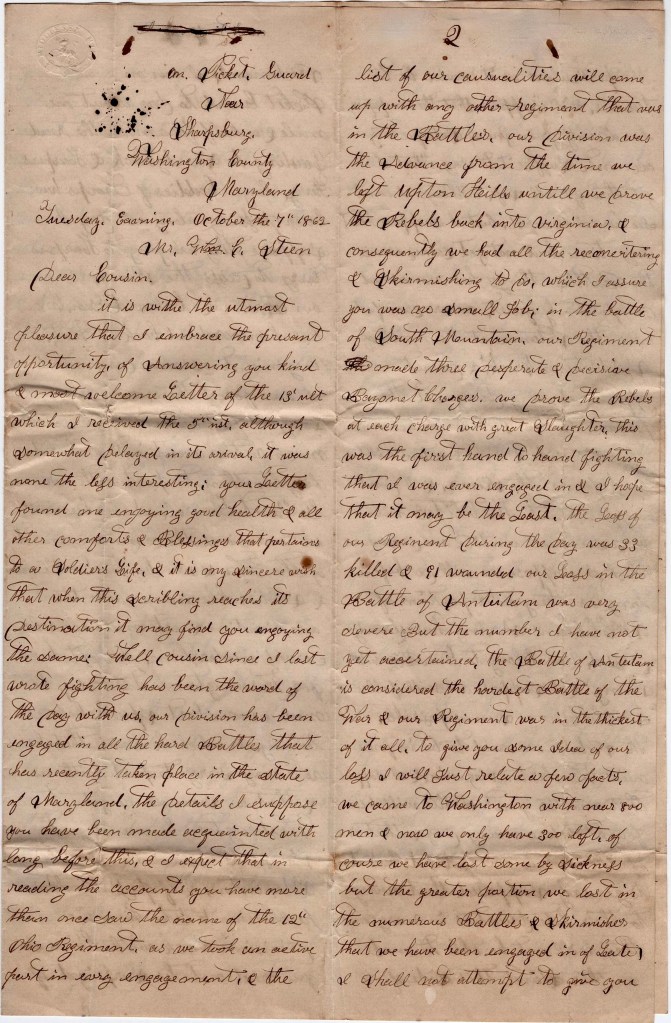 on. Picket. Guard
Near
Sharpsburg.
Washington County
Maryland
Tuesday. Earning. October the 7th 1862
Mr. C. Steen
Dear Cousin.
it is withe the utmast
pleasure that I embrace the presant
opportunity, of Answering you kind
& most welcome Letter of the 13t ult
which I received the 5th inst, although
somewhat Delayed in its arival, it was
none the less interesting; your Letter
found me enjoying good health & all
other comforts & Blessings that pertains
to a Soldier's Life, & it is my sincere wish
that when this scribling reaches its
Destination it may find you engoying
the same: Well cousin since I last
wrote fighting has been the word of
the Day with us, our Division has been
engaged in all the hard Battles that
has recently taken place in the state
of Maryland, the Details I suppose
you have been made acquainted with
long before this, & I expect that in
reading the accounts you have more
than once saw the name of the 12th
Ohio Regiment, as we took an active
part in evry engagement, & the
2
list of our causualities will come
up with any other regiment that was
in the Battles. our Division was
the Advance from the time we
left Upton Hills untill we Drove
the Rebels back into virginia, &
consequently we had all the reconitering
& Skirmishing to Do, which I assure
you was no small Job; in the battle
of South Mountain, our Regiment
made three Desperate & Decisive
Bayonet Charges. we Drove the Rebels
at each charge with great Slaughter, this
was the first hand to hand fighting
that I was ever engaged in & I hope
that it may be the Last. the Loss of
our Regiment During the Day was 33
killed & 91 wounded our Loss in the
Battle of Antutam was very
severe But the number I have not
yet accertained, the Battle of Antutam
is considered the hardest Battle of the
War & our Regiment was in the thickest
of it all, to give you some Idea of our
loss I will Just relate a few facts,
we came to Washington with near 800
men & now we only have 300 left, of
coure we have lost some by Sickness
but the greater portion we lost in
the numerous Battles & Skirmishes
that we have been engaged in of Late)
I shall not attempt to give you